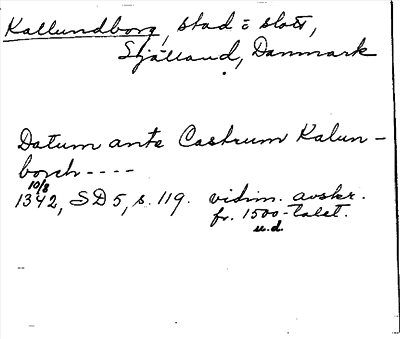 Kallundborg, stad o slott,
Själland, Danmark
Datum ante Castrum Kalun-
borch ----
10/8
1342, SD 5, s. 119. vidim. avskr.
fr. 1500-talet.
u.d.